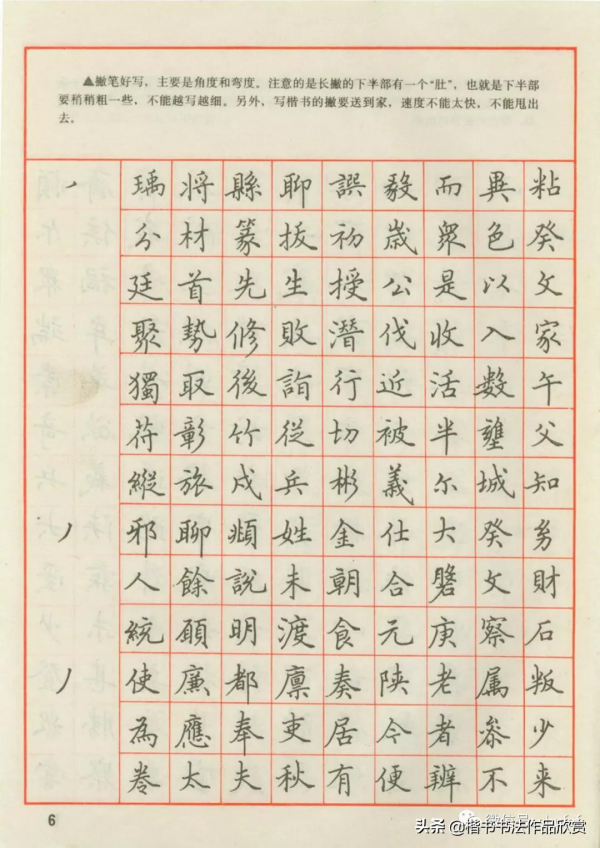 ▲撇笔好写，主要是角度和弯度。注意的是长撇的下半部有一个“肚”，也就是下半部
要稍稍粗一些，不能越写越细。另外，写楷书的撇要送到家，速度不能太快，不能甩出
去。
瑀将縣聊誤毅而異粘
分材篆拔初歲眾色癸
廷首先生授公是以文
聚勢修敗潛伐收入家
獨取後詣行近活數午
苻彰竹從切被半壅父
縱旅戍兵彬義尔城知
邪聊頫姓金仕大癸
人餘說未朝合文財
統願明渡食元庚察石
使廉都廪奏陝老属叛
為應奉吏居令者叅少
卷太夫秋有便辨不来
6
头条@楷书书法作品欣赏